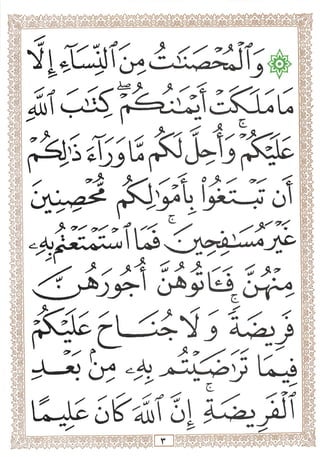 ۞ وَٱلْمُحْصَنَـٰتُ مِنَ ٱلنِّسَآءِ إِلَّا
مَا مَلَكَتْ أَيْمَـٰنُكُمْ ۖ كِتَـٰبَ ٱللَّهِ
عَلَيْكُمْ ۚ وَأُحِلَّ لَكُم مَّا وَرَآءَ ذَٰلِكُمْ
أَن تَبْتَغُوا۟ بِأَمْوَٰلِكُم مُّحْصِنِينَ
غَيْرَ مُسَـٰفِحِينَ ۚ فَمَا ٱسْتَمْتَعْتُم بِهِۦ
مِنْهُنَّ فَـَٔاتُوهُنَّ أُجُورَهُنَّ
فَرِيضَةً ۚ وَلَا جُنَاحَ عَلَيْكُمْ
فِيمَا تَرَٰضَيْتُم بِهِۦ مِنۢ بَعْدِ
ٱلْفَرِيضَةِ ۚ إِنَّ ٱللَّهَ كَانَ عَلِيمًا
٣